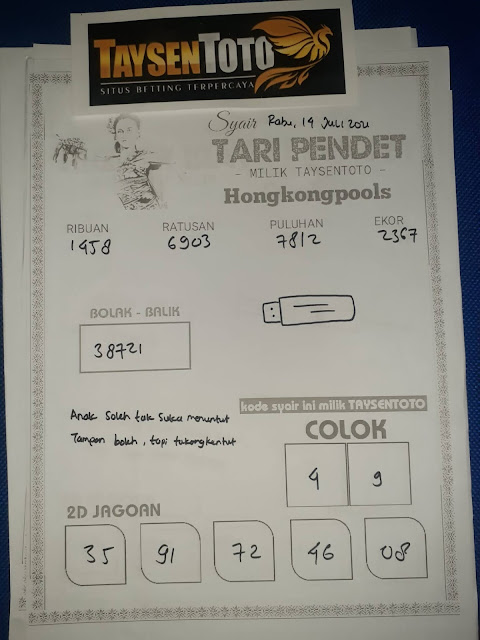 TAYSENTOTO
SITUS BETTING TERPERCAYA
Syair Rabu, 14 Juli 2021
TARI PENDET
- MILIK TAYSENTOTO -
Hongkongpools
RIBUAN RATUSAN PULUHAN EKOR
1458 6903 7812 2367
BOLAK - BALIK
38721
Anak Soleh tak Suka menuntut
Tampan boleh, tapi tukang kentut
kode syair ini milik TAYSENTOTO
COLOK
4 9
2D JAGOAN
35 91 72 46 08